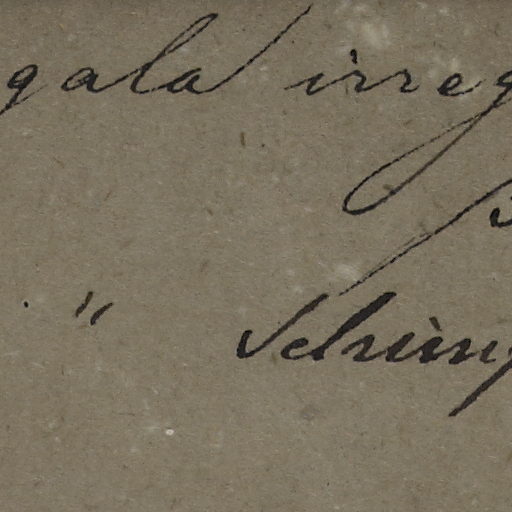 gala irreg
" Schimp